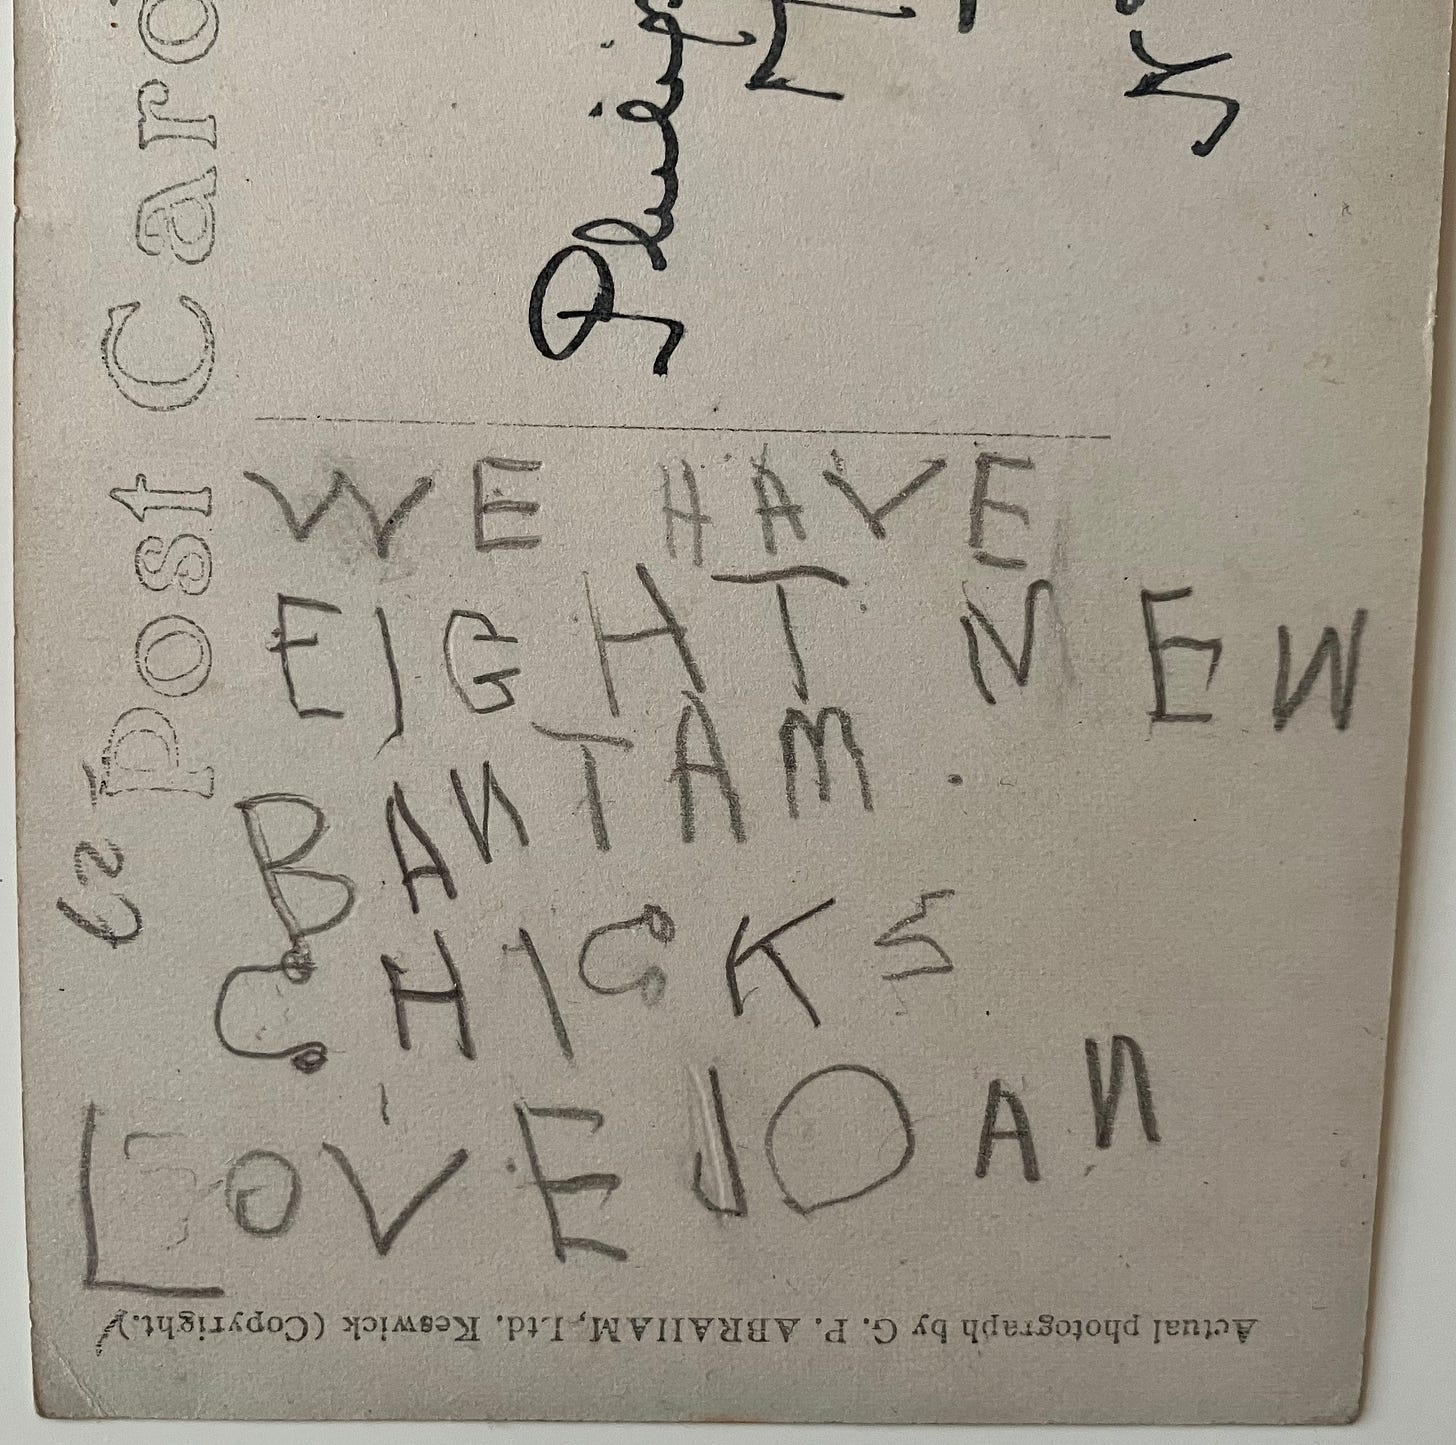 Post Card
WE HAVE
EIGHT NEW
BANTAM
CHICKS
LOVE JOAN
Actual photograph by G. P. ABRAHAM, Ltd. Keswick (Copyright.)